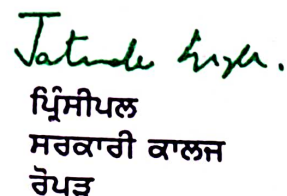 Jatinder Singh.
ਪ੍ਰਿੰਸੀਪਲ
ਸਰਕਾਰੀ ਕਾਲਜ
ਰੋਪੜ